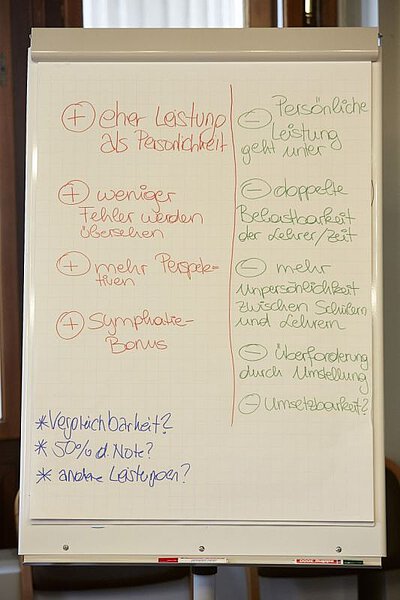 ⊕ eher Leistung
als Persönlichkeit
⊕ weniger
Fehler werden
übersehen
⊕ mehr Perspek-
tiven
⊕ Symphatie-
Bonus
⊖ Persönliche
Leistung
geht unter
⊖ doppelte
Belastbarkeit
der Lehrer/zeit
⊖ mehr
unpersönlichkeit
zwischen Schülern
und Lehrern
⊖ Überforderung
durch Umstellung
⊖ Umsetzbarkeit?
* Vergleichbarkeit?
* 50% d. Note?
* andere Leistungen?